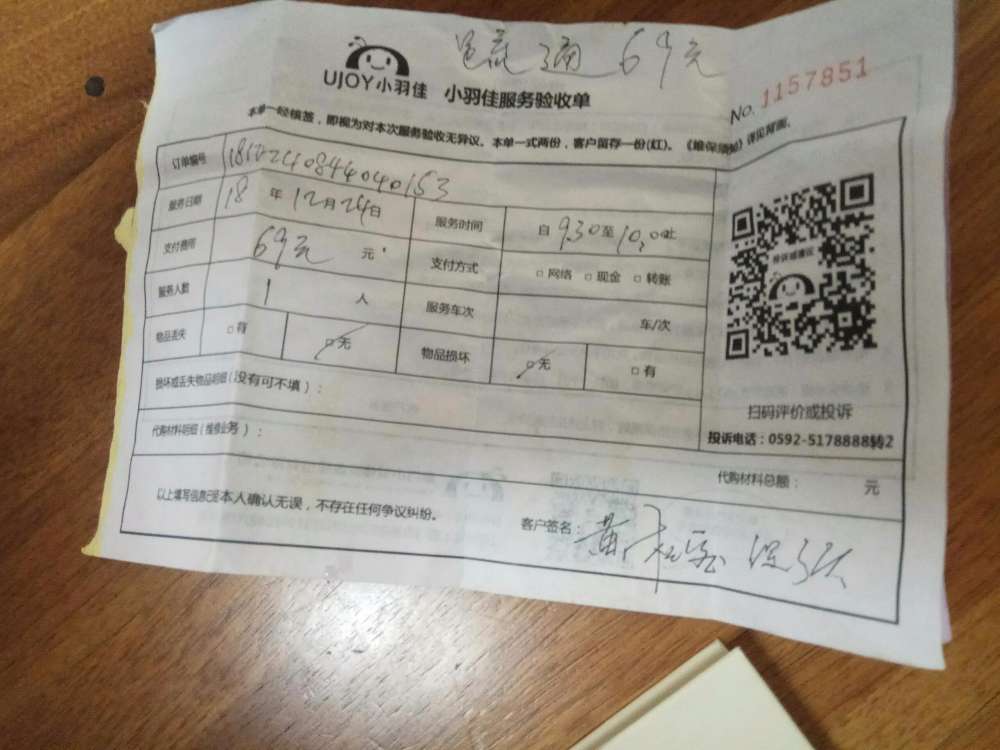 通 69元
UJOY小羽佳 小羽佳服务验收单
No. 1157851
本单一经核签，即视为对本次服务验收无异议。本单一式两份，客户留存一份(红)。《维保须知》详见背面。
订单编号
服务日期 18 年 12月24日 服务时间 自 9:30 至 10:00 止
支付费用 69元 元 支付方式 □ 网络 □ 现金 □ 转账
服务人数 1 人 服务车次 车/次
物品丢失 □ 有 □ 无 物品损坏 □ 无 □ 有
损坏或丢失物品明细(没有可不填)：
投诉或建议
扫码评价或投诉
投诉电话：0592-5178888转2
代购材料明细(维修业务)：
代购材料总额： 元
以上填写信息已经本人确认无误，不存在任何争议纠纷。
客户签名：黄